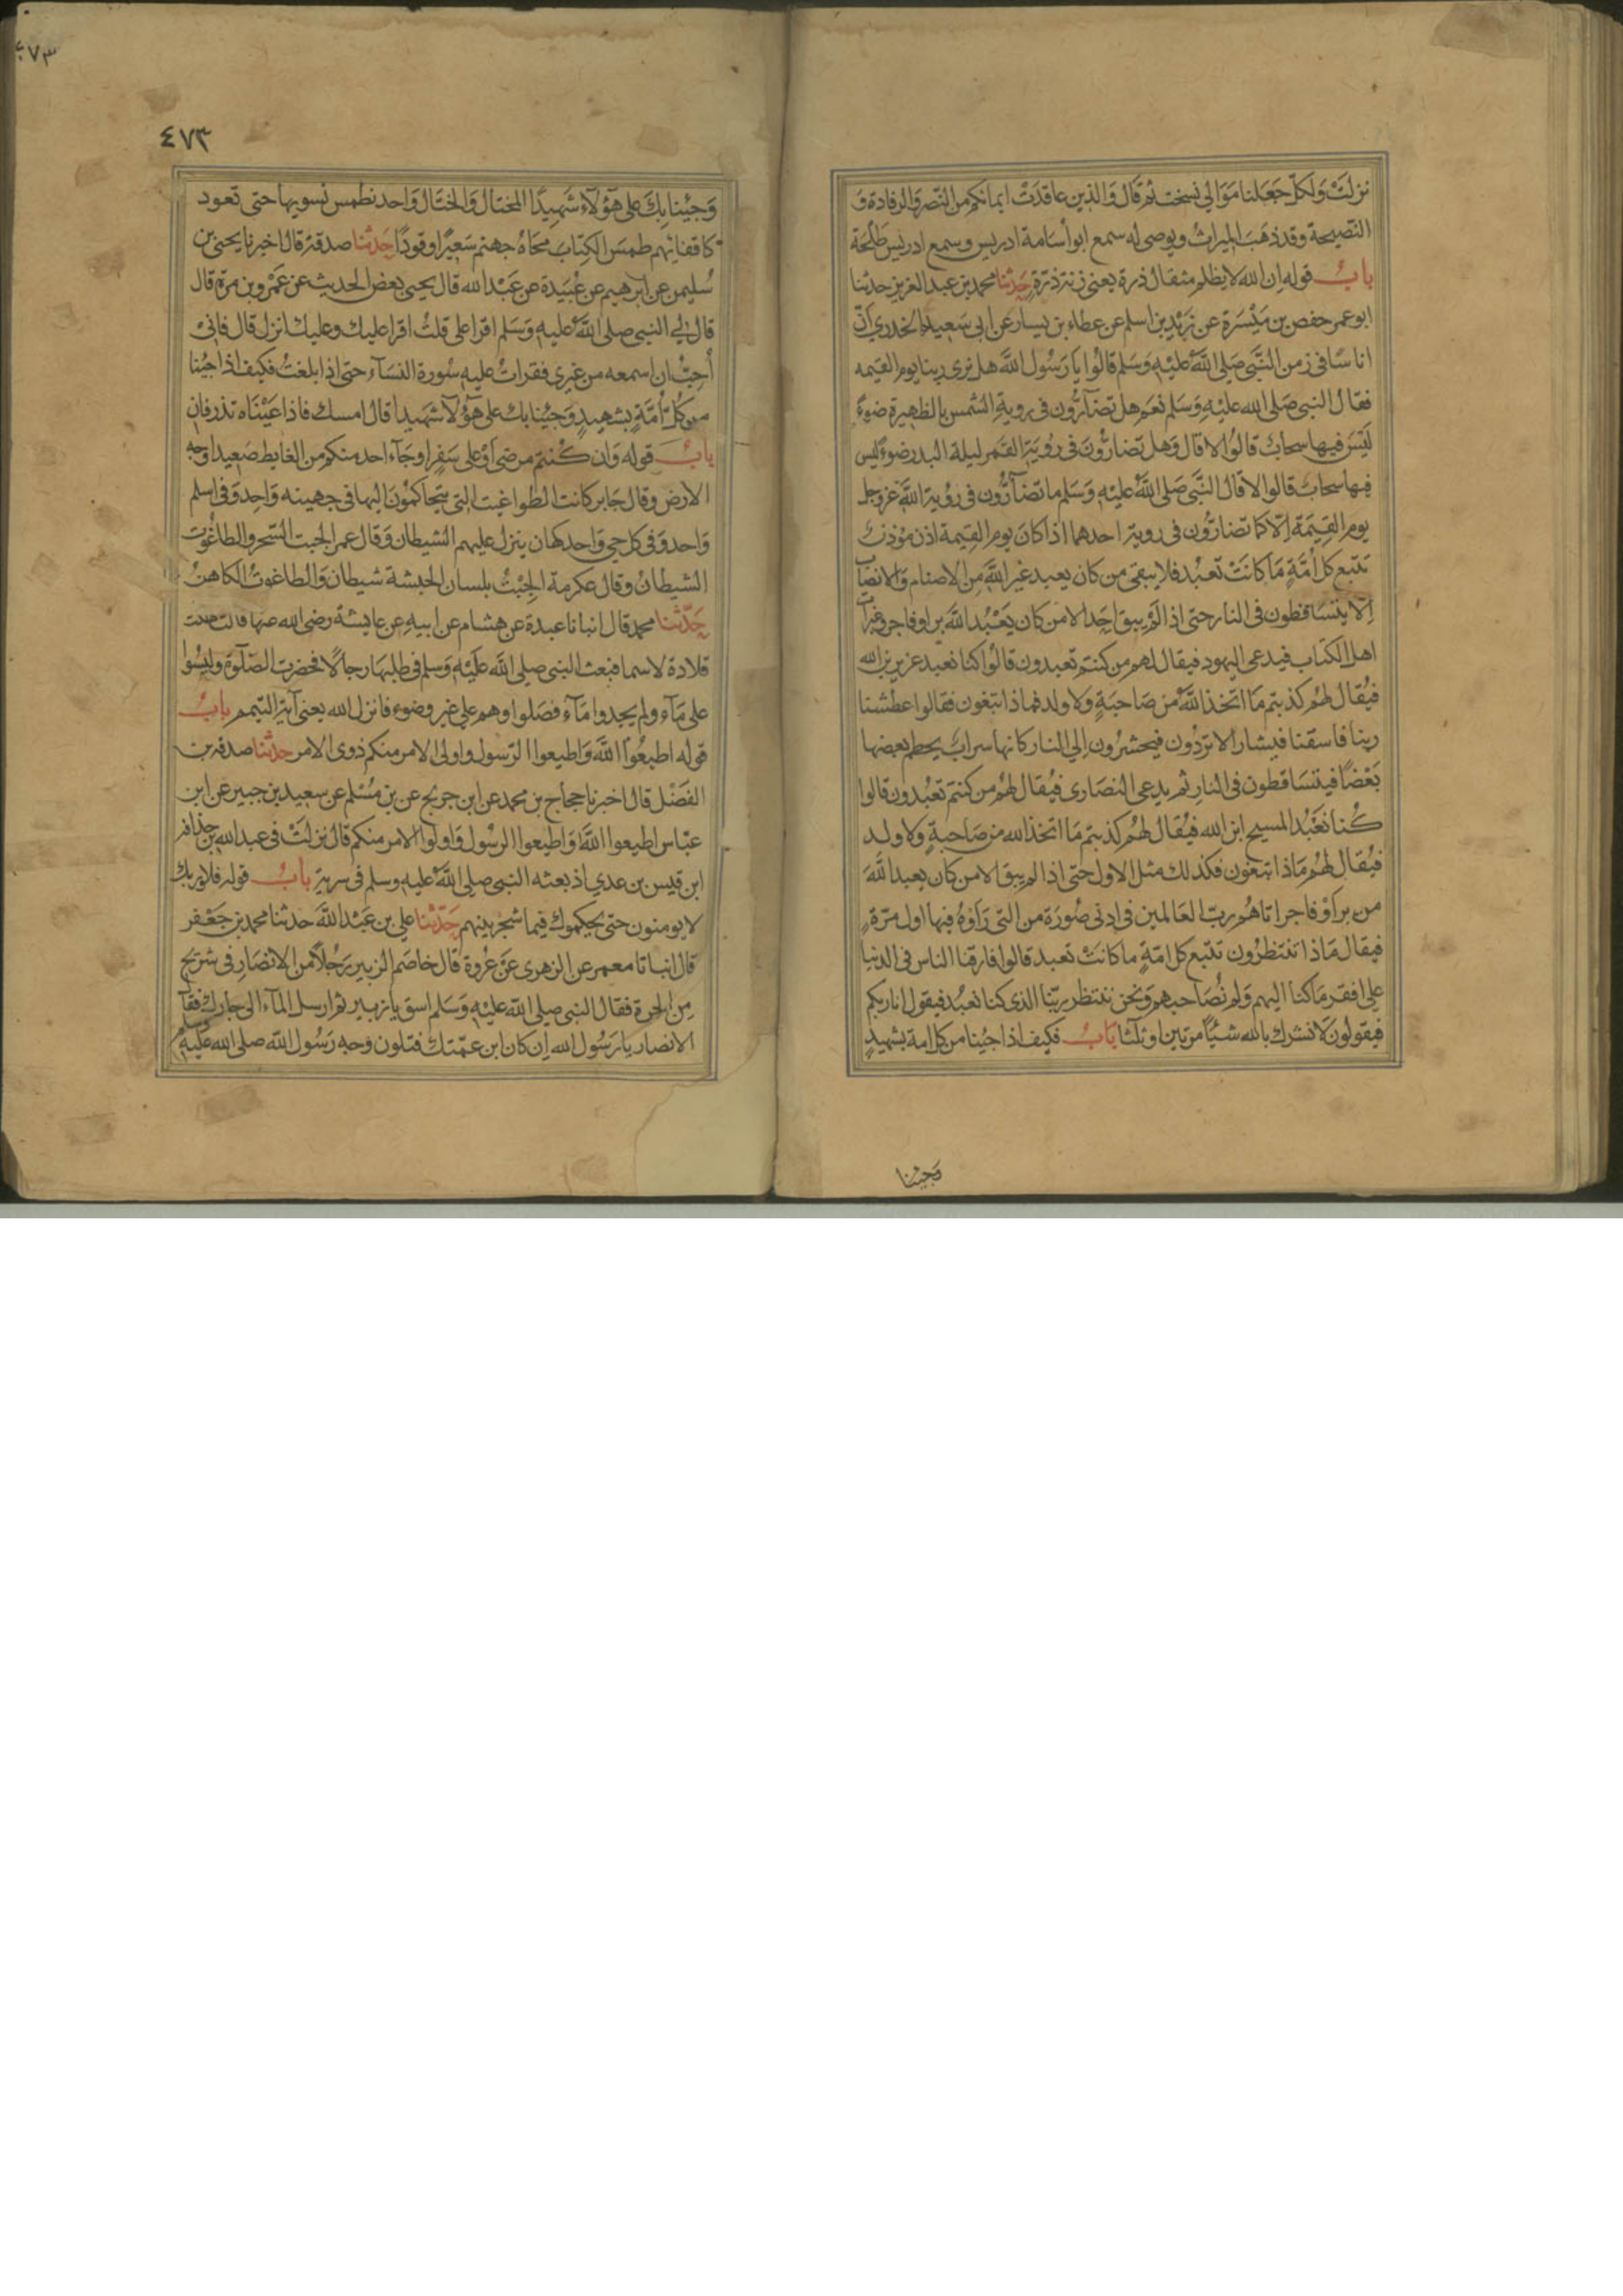 نزلت ولكل جعلنا موالي نسخت ثم قال والذين عاقدت ايمانكم من النصر والرفادة و
النصيحة وقد ذهب الميراث ويوصى له سمع ابو أسامة ادريس وسمع ادريس طلحة
باب قوله ان الله لا يظلم مثقال ذرة يعني زنة ذرة حدثنا محمد بن عبد العزيز حدثنا
ابو عمر حفص بن ميسرة عن زيد بن اسلم عن عطاء بن يسار عن ابى سعيد الخدري انّ
اناسا فى زمن النبى صلى الله عليه وسلم قالوا يا رسول الله هل نرى ربنا يوم القيمه
فقال النبى صلى الله عليه وسلم نعم هل تضآرون فى روية الشمس بالظهيرة ضوء
ليس فيها سحاب قالوا لا قال وهل تضارون فى روية القمر ليلة البدر ضوء ليس
فيها سحاب قالوا لا قال النبى صلى الله عليه وسلم ما تضآرون فى روية الله عز وجل
يوم القيمة الا كما تضارون فى روية احدهما اذا كان يوم القيمة اذن موذن
تتبع كل أمة ما كانت تعبد فلا يبقى من كان يعبد غير الله من الاصنام والانصاب
الا يتساقطون فى النار حتى اذا لم يبق احد الا من كان يعبد الله بر او فاجر وغبرات
اهل الكتاب فيدعى اليهود فيقال لهم من كنتم تعبدون قالوا كنا نعبد عزير بن الله
فيقال لهم كذبتم ما اتخذ الله من صاحبة ولا ولد فماذا تبغون فقالوا عطشنا
ربنا فاسقنا فيشار الا تردون فيحشرون الى النار كانها سراب يحطم بعضها
بعضا فيتساقطون فى النار ثم يدعى النصارى فيقال لهم من كنتم تعبدون قالوا
كنا نعبد المسيح ابن الله فيقال لهم كذبتم ما اتخذ الله من صاحبة ولا ولد
فيقال لهم ماذا تبغون فكذلك مثل الاول حتى اذا لم يبق الا من كان يعبد الله
من بر أو فاجر اتاهم رب العالمين فى ادنى صورة من التى رأوه فيها اول مرة
فيقال ماذا تنتظرون تتبع كل امة ما كانت تعبد قالوا فارقنا الناس فى الدنيا
على افقر ما كنا اليهم ولم نصاحبهم ونحن ننتظر ربنا الذى كنا نعبد فيقول انا ربكم
فيقولون لا نشرك بالله شيئا مرتين او ثلثا باب فكيف اذا جئنا من كل امة بشهيد
وجئنا
٤٧٣
٤٧٣
وجئنا بك على هؤلاء شهيدا المختال والختال واحد نطمس نسويها حتى تعود
كاقفائهم طمس الكتاب محاه جهنم سعيرا وقودا حدثنا صدقة قال اخبرنا يحيى بن
سليمن عن ابرهيم عن عبيدة عن عبد الله قال يحيى بعض الحديث عن عمرو بن مرة قال
قال لي النبى صلى الله عليه وسلم اقرا على قلت اقرا عليك وعليك انزل قال فانى
أحب ان اسمعه من غيري فقرات عليه سورة النسآء حتى اذا بلغت فكيف اذا جئنا
من كل أمة بشهيد وجئنا بك على هؤلآ شهيدا قال امسك فاذا عيناه تذرفان
باب قوله وان كنتم مرضى أو على سفر او جآء احد منكم من الغايط صعيدا وجه
الارض وقال جابر كانت الطواغيت التى يتحاكمون اليها فى جهينه واحد وفى اسلم
واحد وفى كل حي واحد كهان ينزل عليهم الشيطان وقال عمر الجبت السحر والطاغوت
الشيطان وقال عكرمة الجبت بلسان الحبشة شيطان والطاغوت الكاهن
حدثنا محمد قال انبانا عبدة عن هشام عن ابيه عن عايشة رضى الله عنها قالت هلكت
قلادة لاسما فبعث النبى صلى الله عليه وسلم فى طلبها رجالا فحضرت الصلوة وليسوا
على مآء ولم يجدوا مآء فصلوا وهم على غير وضوء فانزل الله يعنى آية التيمم باب
قوله اطيعوا الله واطيعوا الرسول واولى الامر منكم ذوى الامر حدثنا صدقه بن
الفضل قال اخبرنا حجاج بن محمد عن ابن جريج عن بن مسلم عن سعيد بن جبير عن ابن
عباس اطيعوا الله واطيعوا الرسول واولوا الامر منكم قال نزلت فى عبد الله بن حذافه
ابن قيس بن عدي اذ بعثه النبى صلى الله عليه وسلم فى سرية باب قوله فلا وربك
لا يومنون حتى يحكموك فيما شجر بينهم حدثنا على بن عبد الله حدثنا محمد بن جعفر
قال انبانا معمر عن الزهرى عن عروة قال خاصم الزبير رجلا من الانصار فى شريج
من الحرة فقال النبى صلى الله عليه وسلم اسق يا زبير ثم ارسل المآء الى جارك فقال
الانصار يا رسول الله إن كان ابن عمتك فتلون وجه رسول الله صلى الله عليه وسلم